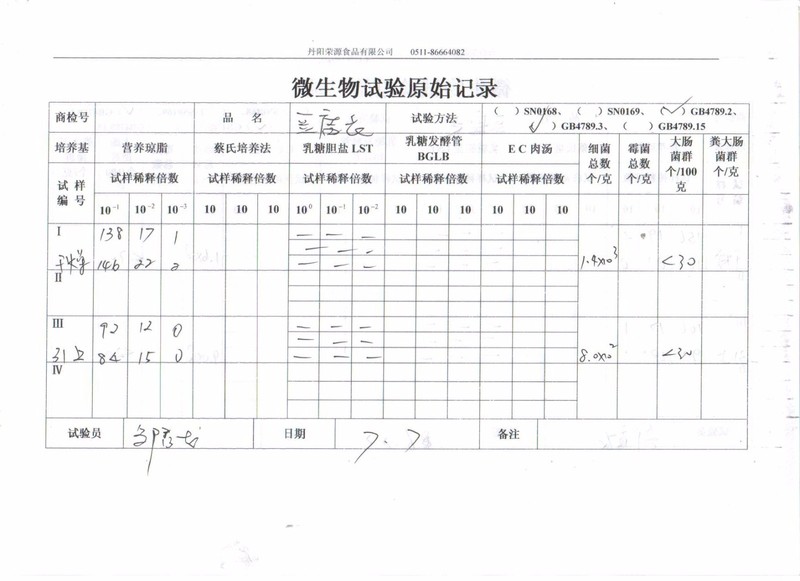 丹阳荣源食品有限公司 0511-86664082
微生物试验原始记录
商检号 品 名 豆腐衣 试验方法 ( )SN0168、( )SN0169、(✓)GB4789.2、
(✓)GB4789.3、( )GB4789.15
培养基 营养琼脂 蔡氏培养法 乳糖胆盐 LST 乳糖发酵管 BGLB E C 肉汤 细菌总数个/克 霉菌总数个/克 大肠菌群个/100克 粪大肠菌群个/克
试 样 编 号 试样稀释倍数 试样稀释倍数 试样稀释倍数 试样稀释倍数 试样稀释倍数
10⁻¹ 10⁻² 10⁻³ 10 10 10 10⁰ 10⁻¹ 10⁻² 10 10 10 10 10 10
I 138 17 1 — — —
— — —
146 22 2 — — — 1.4×10³ <30
II
III 92 12 0 — — —
— — —
84 15 0 — — — 8.0×10² <30
IV
试验员 日期 7.7 备注